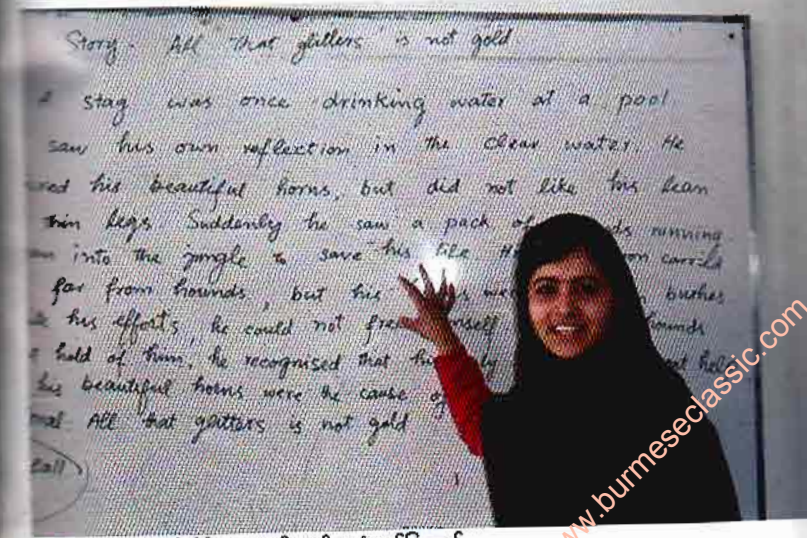 Story - All that glitters is not gold.
A stag was once drinking water at a pool
saw his own reflection in the clear water. He
red his beautiful horns, but did not like his lean
thin legs. Suddenly he saw a pack of ds running
into the jungle to save his life. H on carried
far from hounds, but his s we bushes
his efforts, he could not free mself ounds
hold of him, he recognised that hi ly hel
his beautiful horns were the cause of
ral. All that glitters is not gold
www.burmeseclassic.com